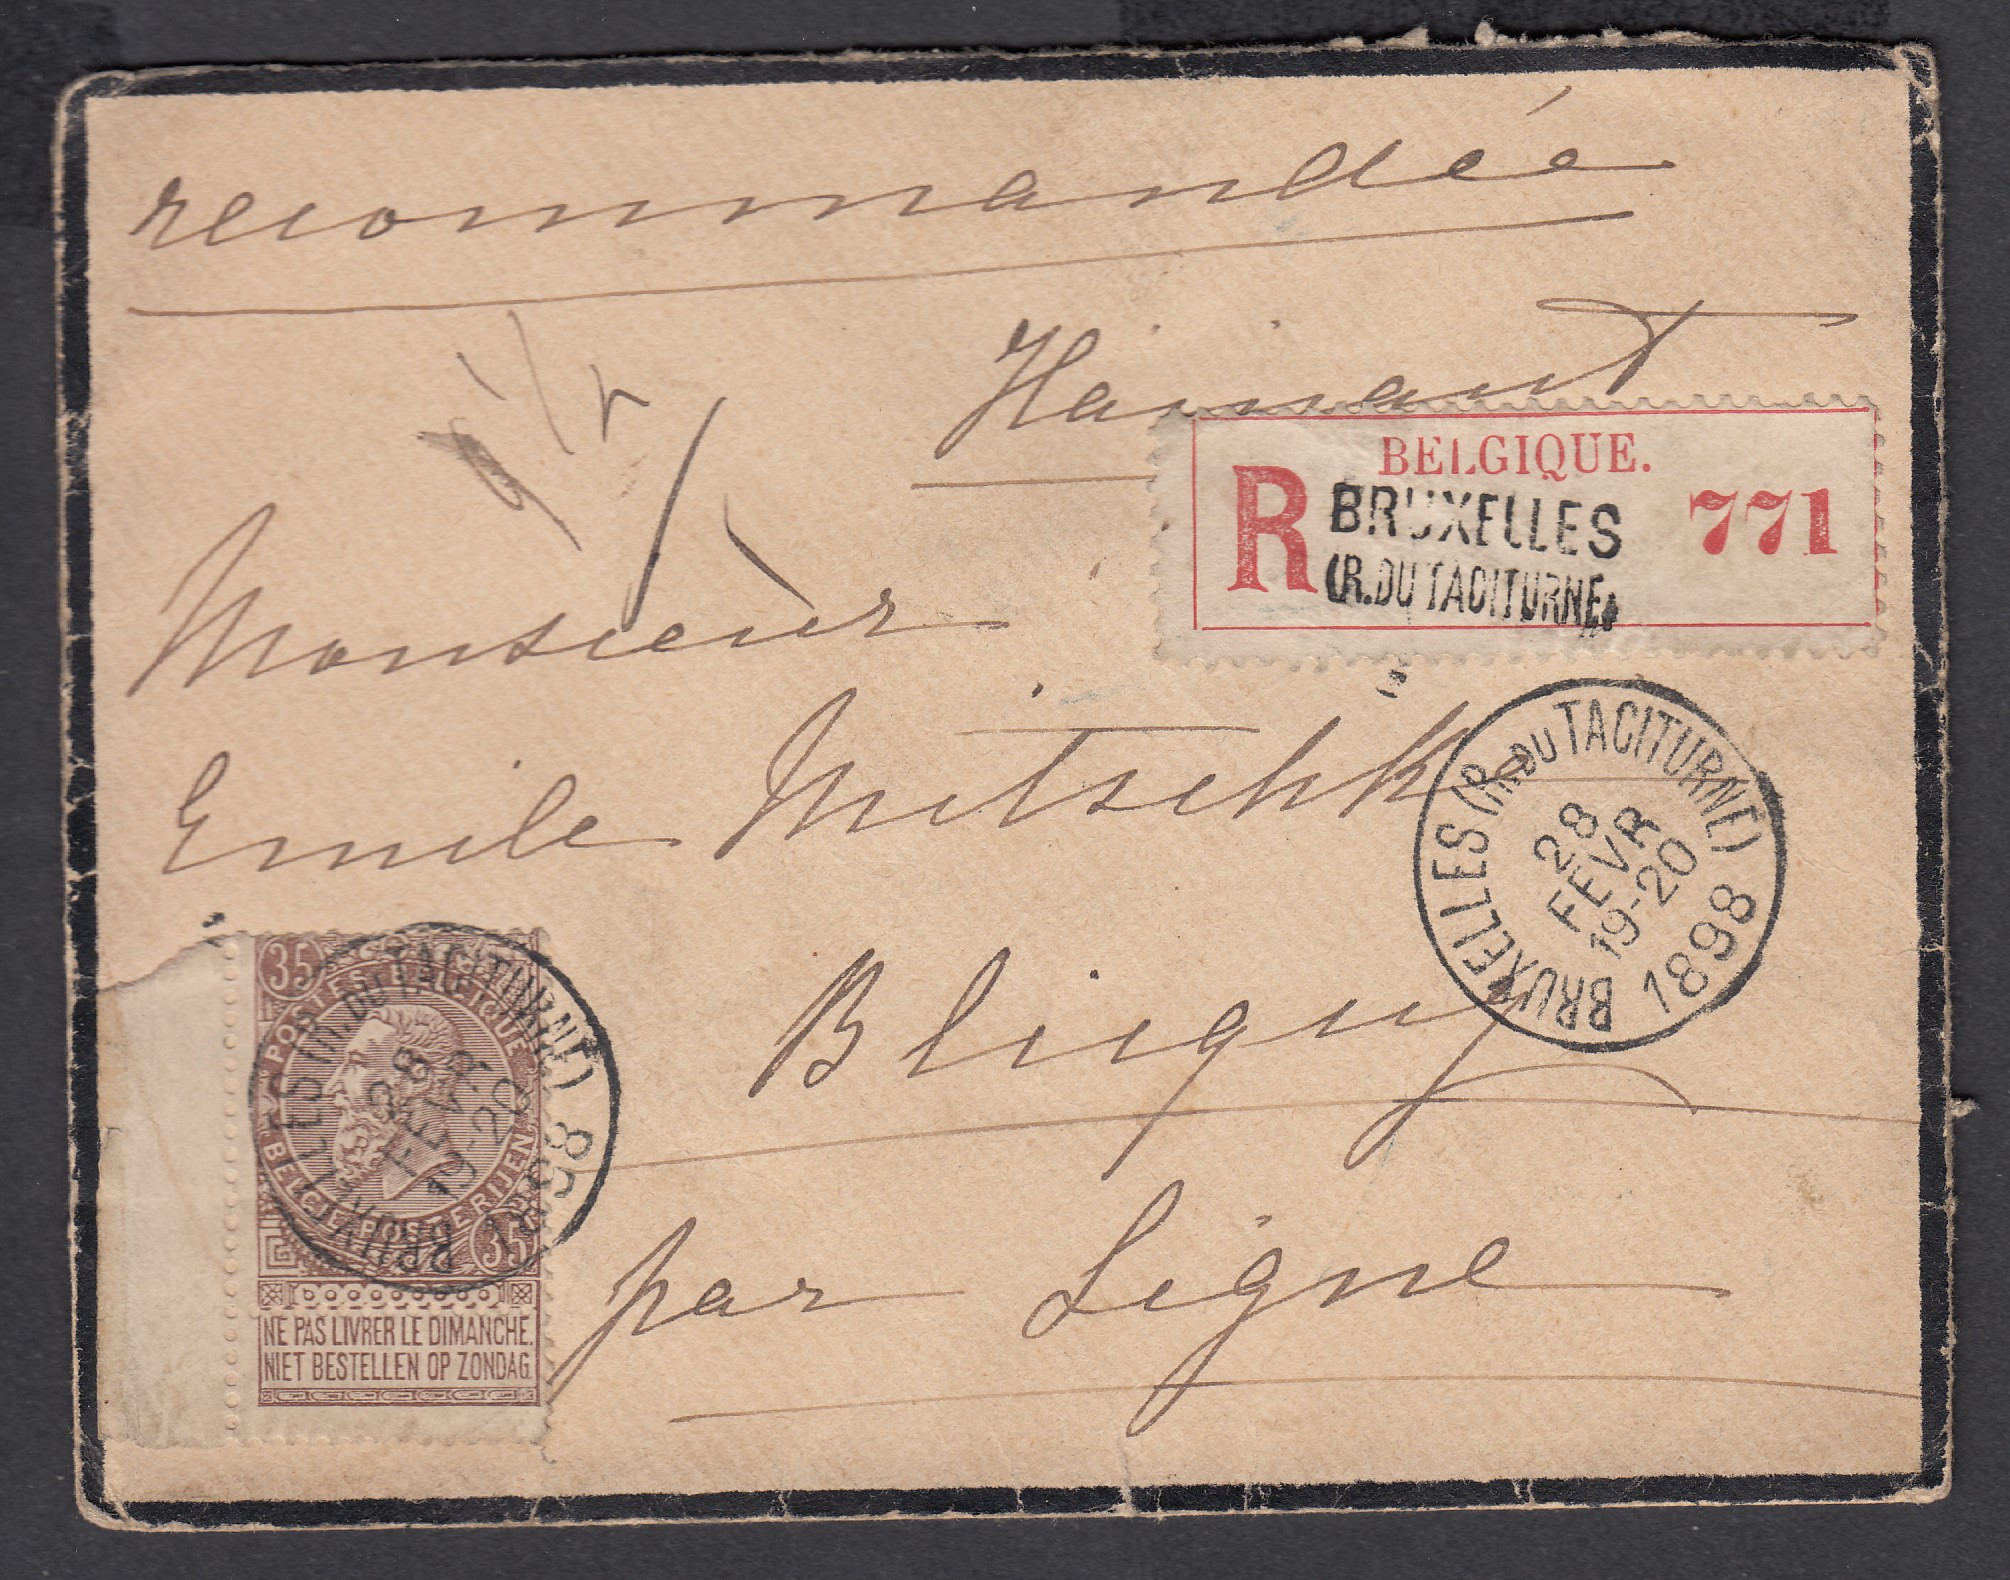 recommandée
Hainaut
BELGIQUE.
R BRUXELLES 771
(R.DU TACITURNE)
Monsieur
Emile Mitschke
BRUXELLES (R.DU TACITURNE)
28
FEVR
19-20
1898
Blicquy
par Ligne
35
POSTES BELGIQUE
BELGIE POSTERIJEN
35
BRUXELLES (R.DU TACITURNE)
28
FEVR
19-20
1898
NE PAS LIVRER LE DIMANCHE.
NIET BESTELLEN OP ZONDAG.